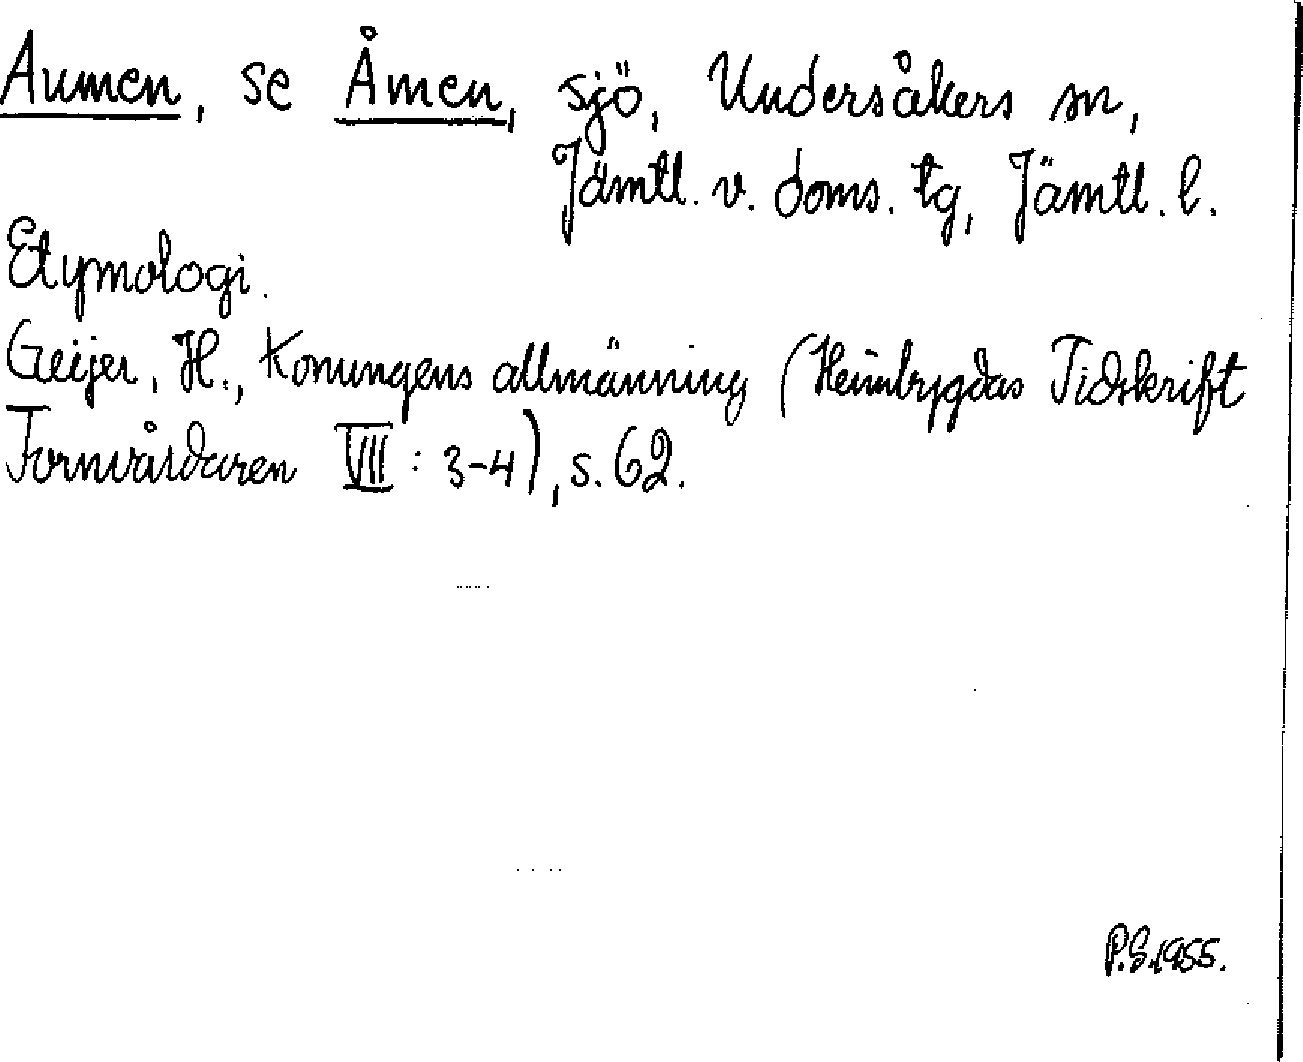 Aumen, se Åmen, sjö, Undersåkers sn,
Jämtl. v. doms. tg, Jämtl. l.
Etymologi.
Geijer, H., Konungens allmänning (Heimbygdas Tidskrift
Fornvårdaren VII: 3-4), s. 62.
P.S. 1955.